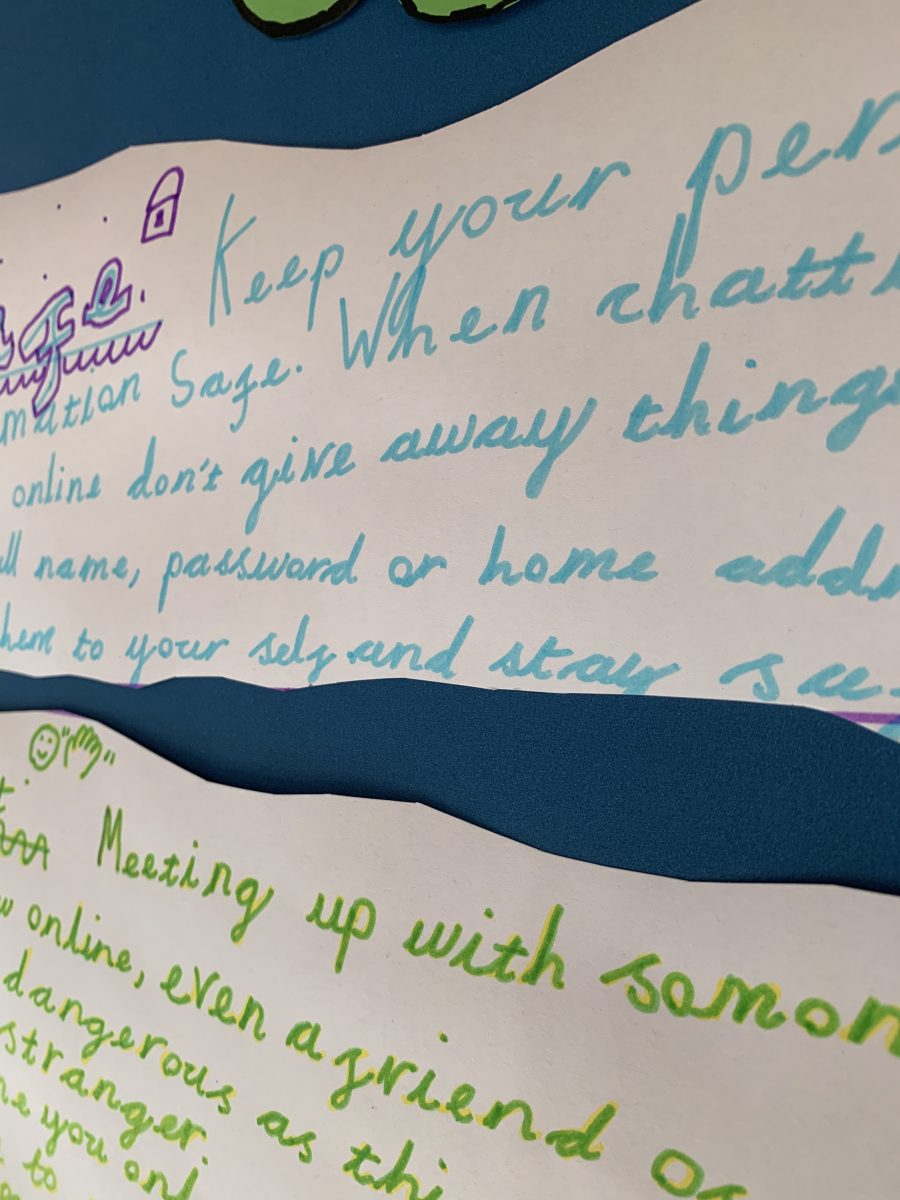 Keep your per
mation Safe. When chatti
online don't give away things
ll name, password or home addr
hem to your self and stay sa
Meeting up with somon
w online, even a friend o
dangerous as thi
stranger.
ne you onl
to